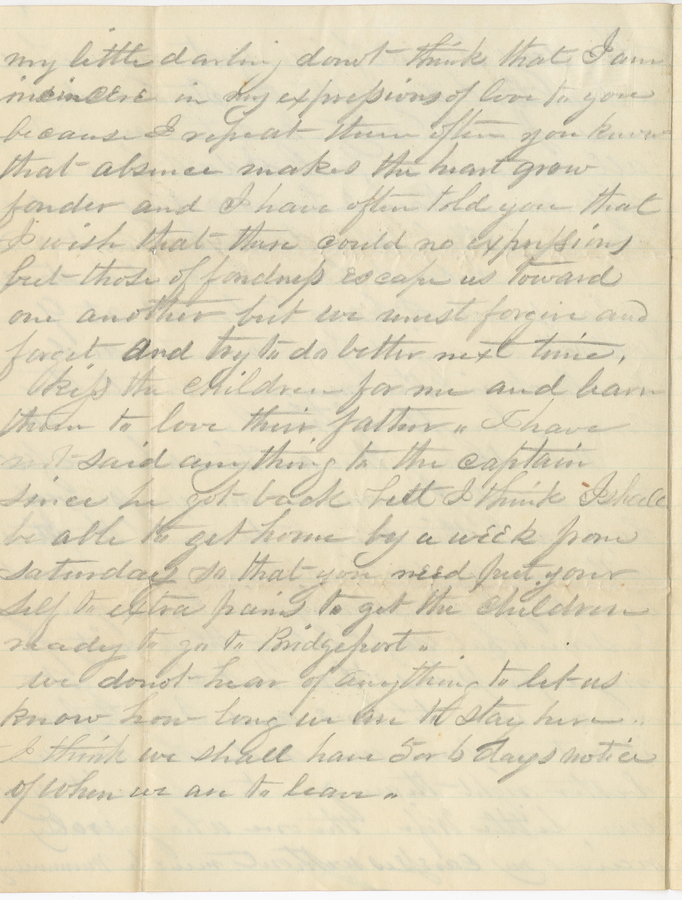 my little darling donot think that I am
insincere in my expressions of love to you
because I repeat them often you know
that absence makes the heart grow
fonder and I have often told you that
I wish that there could no expressions
but those of fondness escape us toward
one another but we must forgive and
forget and try to do better next time,
kiss the children for me and learn
them to love their father " I have
not said anything to the captain
since he got back but I think I shall
be able to get home by a week from
saturday so that you need put your
self to extra pains to get the children
ready to go to Bridgeport "
we donot hear of anything to let us
know how long we are to stay here "
I think we shall have 5 or 6 days notice
of when we are to leave "